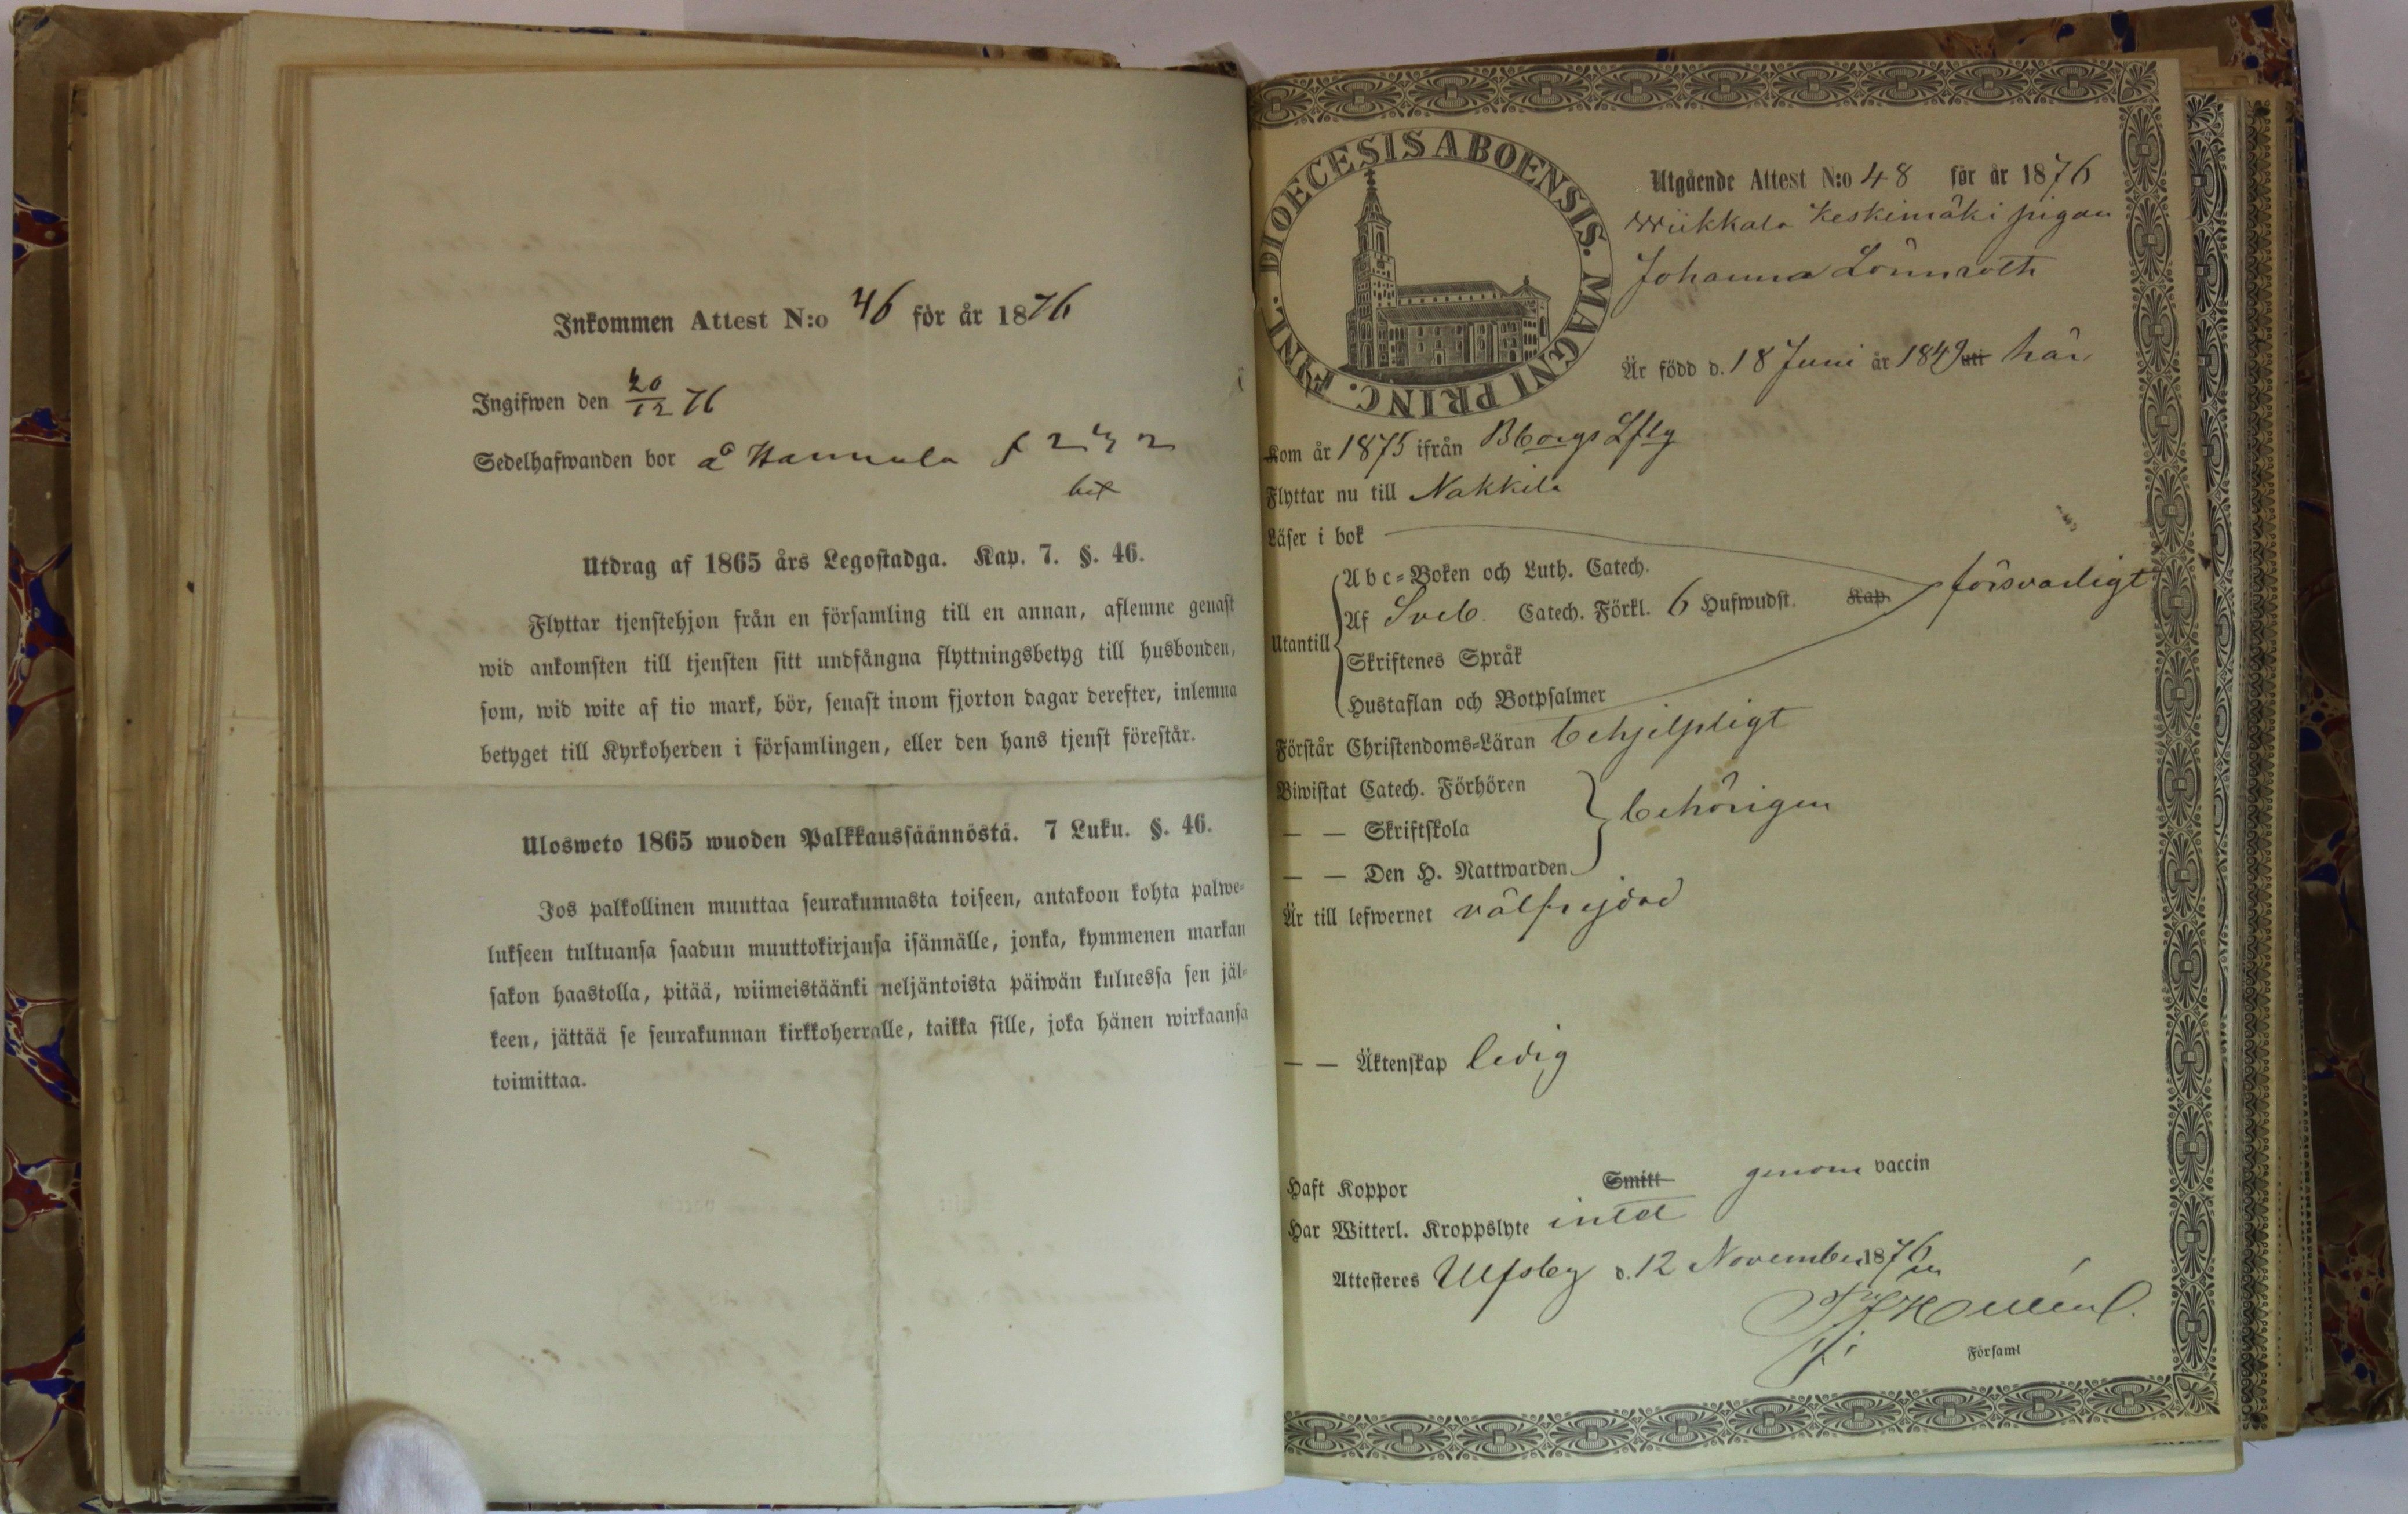 Inkommen Attest N:o 46 för år 1876
Ingifwen den 20/12 76
Sedelhafwanden bor å Hannula
Utdrag af 1865 års Legostadga. Kap. 7. §. 46.
Flyttar tjenstehjon från en församling till en annan, aflemne genast
wid ankomsten till tjensten sitt undfångna flyttningsbetyg till husbonden,
som, wid wite af tio mark, bör, senast inom fjorton dagar derefter, inlemna
betyget till Kyrkoherden i församlingen, eller den hans tjenst förestår.
Ulosweto 1865 wuoden Palkkaussäännöstä. 7 Luku. §. 46.
Jos palkollinen muuttaa seurakunnasta toiseen, antakoon kohta palwe-
lukseen tultuansa saadun muuttokirjansa isännälle, jonka, kymmenen markan
sakon haastolla, pitää, wiimeistäänki neljäntoista päiwän kuluessa sen jäl-
keen, jättää se seurakunnan kirkkoherralle, taikka sille, joka hänen wirkaansa
toimittaa.
DIOECESIS ABOENSIS. MAGNI PRINC. FINL.
Utgående Attest N:o 48 för år 1876
Wiikkala Keskimäki pigan
Johanna Lönnroth
Är född d. 18 Juni år 1849 uti här
Kom år 1875 ifrån Bborgs Lfsg
Flyttar nu till Nakkila
Läser i bok
Utantill
Abc-Boken och Luth. Catech.
Af Sveb. Catech. Förkl. 6 Hufwudst. Kap. försvarligt
Skriftenes Språk
Hustaflan och Botpsalmer
Förstår Christendoms-Läran behjelpligt
Biwistat Catech. Förhören
— — Skriftskola behörigen
— — Den H. Nattwarden
Är till lefwernet välfrejdad
— — Äktenskap ledig
Haft Koppor Smitt genom vaccin
Har Witterl. Kroppslyte intet
Attesteres Ulfsby d. 12 November 1876
Församl